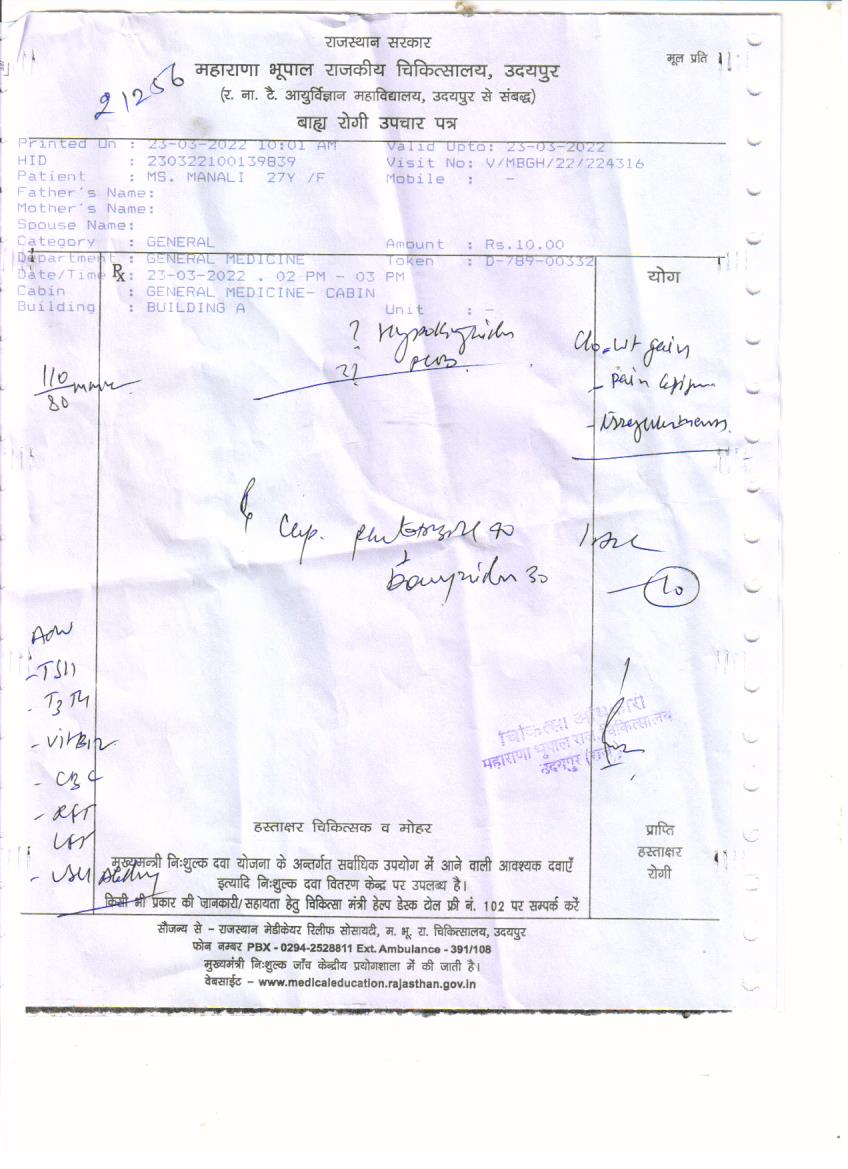 राजस्थान सरकार
मूल प्रति
महाराणा भूपाल राजकीय चिकित्सालय, उदयपुर
21256
(र. ना. टै. आयुर्विज्ञान महाविद्यालय, उदयपुर से संबद्ध)
बाह्य रोगी उपचार पत्र
Printed On : 23-03-2022 10:01 AM Valid Upto: 23-03-2022
HID : 230322100139839 Visit No: V/MBGH/22/224316
Patient : MS. MANALI 27Y /F Mobile : -
Father's Name:
Mother's Name:
Spouse Name:
Category : GENERAL Amount : Rs.10.00
Department : GENERAL MEDICINE Token : D-789-00332
Date/Time : 23-03-2022 . 02 PM - 03 PM
Rx
योग
Cabin : GENERAL MEDICINE- CABIN
Building : BUILDING A Unit : -
?
C/o - wt gain
??
110
80
- Pain
Cap. 40
30
10
Adv
- TSH
- T3 T4
- Vit B12
- CBC
- RFT
LFT
चिकित्सा अधिकारी
महाराणा भूपाल राज. चिकित्सालय
उदयपुर (राज.)
हस्ताक्षर चिकित्सक व मोहर
प्राप्ति
हस्ताक्षर
रोगी
मुख्यमन्त्री निःशुल्क दवा योजना के अन्तर्गत सर्वाधिक उपयोग में आने वाली आवश्यक दवाएँ
इत्यादि निःशुल्क दवा वितरण केन्द्र पर उपलब्ध है।
किसी भी प्रकार की जानकारी/सहायता हेतु चिकित्सा मंत्री हेल्प डेस्क टोल फ्री नं. 102 पर सम्पर्क करें
सौजन्य से – राजस्थान मेडीकेयर रिलीफ सोसायटी, म. भू. रा. चिकित्सालय, उदयपुर
फोन नम्बर PBX - 0294-2528811 Ext. Ambulance - 391/108
मुख्यमंत्री निःशुल्क जाँच केन्द्रीय प्रयोगशाला में की जाती है।
वेबसाईट – www.medicaleducation.rajasthan.gov.in